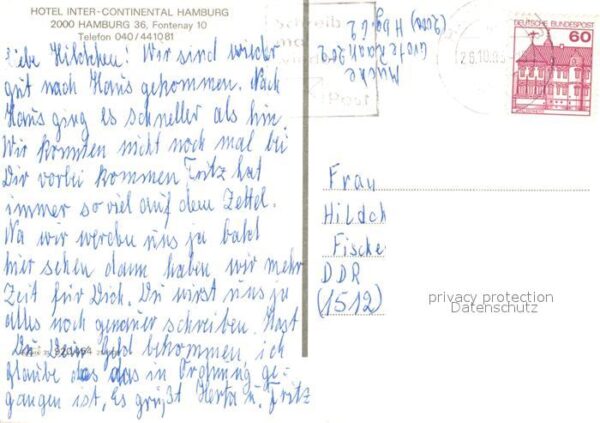 HOTEL INTER-CONTINENTAL HAMBURG
2000 HAMBURG 36, Fontenay 10
Telefon 040/441081
Liebe Hildchen! Wir sind wieder
gut nach Haus gekommen. Nach
Haus ging es schneller als hin
Wir konnten nicht noch mal bei
Dir vorbei kommen Fritz hat
immer so viel auf dem Zettel.
Na wir werden uns ja bald
hier sehen dann haben wir mehr
Zeit für Dich. Du wirst uns ja
alles noch genauer schreiben. Hast
Du Dein Geld bekommen, ich
glaube das das in Ordnung ge-
gangen ist. Es grüßt Herta u. Fritz
Mücke
2000 Hbg 62
DEUTSCHE BUNDESPOST
60
26.10.85
Frau
Hildch
Fische
DDR
(1512)
privacy protection
Datenschutz